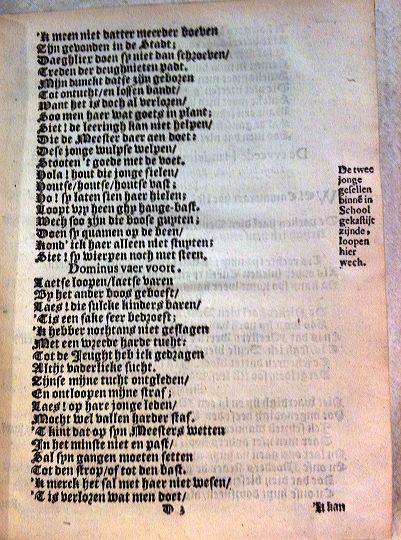 'K meen niet datter meerder boeven
Zijn gevonden in de Stadt;
Daeghlicx doen sy niet dan schroeven/
Treden der deughnieten padt.
Mijn dunckt datse zijn geboren
Tot ontucht/en lossen bandt/
Want het is doch al verloren/
Soo men haer wat goets in plant;
Siet! de leeringh kan niet helpen/
Die de Meester haer aen doet:
Dese jonge wulpse welpen/
Stooten 't goede met de voet.
Hola! hout die jonge sielen/
Houtse/houtse/houtse vast;
Ho! sy laten sien haer hielen;
Loopt vry heen ghy hange-bast.
Wech soo zijn die boose guyten;
Doen sy quamen op de been/
Kond' ick haer alleen niet stuyten;
Siet! sy wierpen noch met steen.
Dominus vaer voort.
Laetse loopen/laetse varen
By het ander boos geboeft/
Laes! die sulcke kinders baren/
'Tis een sake seer bedroeft;
'K hebber nochtans niet geslagen
Met een wreede harde tucht;
Tot de Jeught heb ick gedragen
Altijt vaderlicke sucht.
Zijnse mijne tucht ontgleden/
En ontloopen mijne straf;
Laes! op hare jonge leden/
Mocht wel vallen harder staf.
'T kint dat op sijn Meesters wetten
In het minste niet en past/
Sal sijn gangen moeten setten
Tot den strop/of tot den bast.
'K merck het sal met haer niet wesen/
'T is verloren wat men doet/
D 3
'K kan
De twee
jonge
gesellen
binnē in
School
gekastijt
zijnde,
loopen
hier
wech.